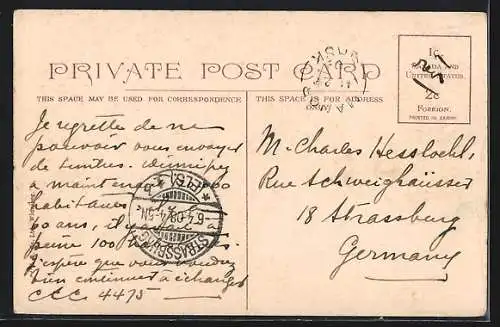 PRIVATE POST CARD
THIS SPACE MAY BE USED FOR CORRESPONDENCE
THIS SPACE IS FOR ADDRESS
1c
CANADA AND
UNITED STATES.
2c
FOREIGN.
PRINTED IN SAXONY
SASK
STRASSBURG
(ELS.)
-6.4.08.4-5N.
Je regrette de ne
pouvoir vous envoyer
de timbres. Winnipeg
a maintenant
habitants
60 ans, il y avait
peine 100
J'espère que vous voudrez
bien continuer à échanger
CCC 4475
M. Charles
Rue Schweighäusser
18 Strassburg
Germany